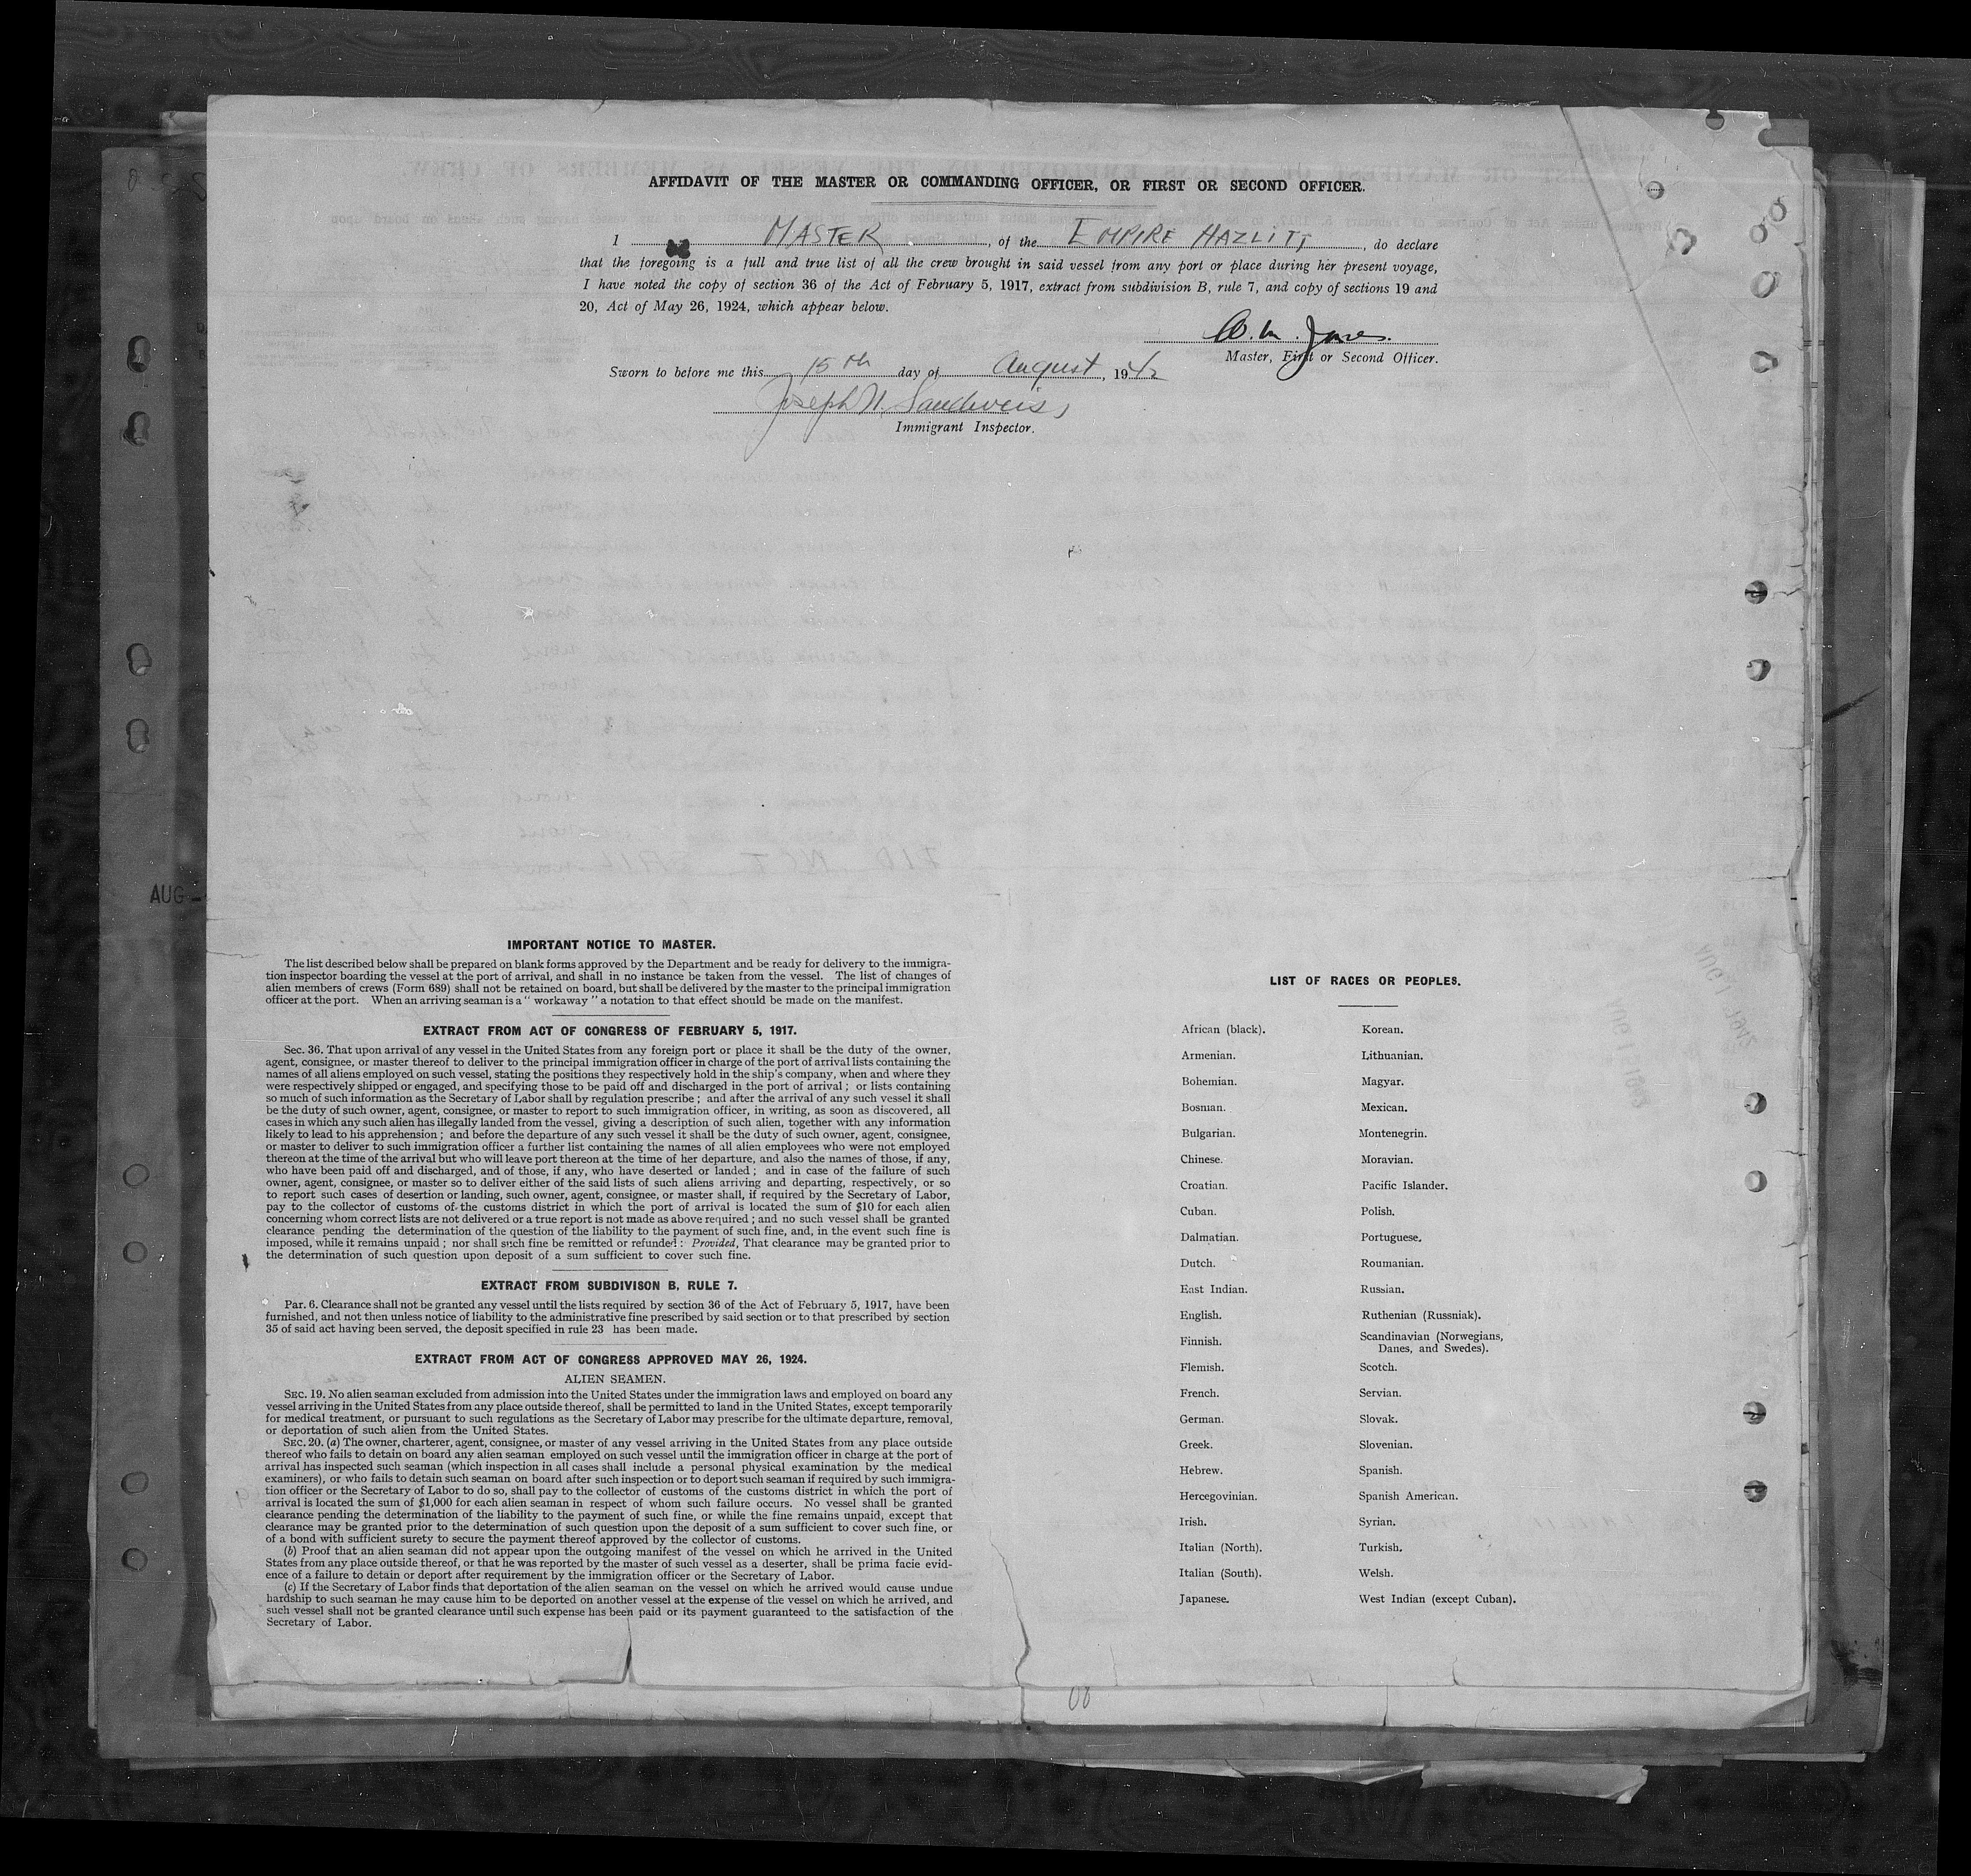 AFFIDAVIT OF THE MASTER OR COMMANDING OFFICER, OR FIRST OR SECOND OFFICER.
I MASTER, of the EMPIRE HAZLITT, do declare
that the foregoing is a full and true list of all the crew brought in said vessel from any port or place during her present voyage,
I have noted the copy of section 36 of the Act of February 5, 1917, extract from subdivision B, rule 7, and copy of sections 19 and
20, Act of May 26, 1924, which appear below.
Jones.
Master, First or Second Officer.
Sworn to before me this 15th day of August, 1942
Joseph
Immigrant Inspector.
AUG
IMPORTANT NOTICE TO MASTER.
The list described below shall be prepared on blank forms approved by the Department and be ready for delivery to the immigra-
tion inspector boarding the vessel at the port of arrival, and shall in no instance be taken from the vessel. The list of changes of
alien members of crews (Form 689) shall not be retained on board, but shall be delivered by the master to the principal immigration
officer at the port. When an arriving seaman is a " workaway " a notation to that effect should be made on the manifest.
EXTRACT FROM ACT OF CONGRESS OF FEBRUARY 5, 1917.
Sec. 36. That upon arrival of any vessel in the United States from any foreign port or place it shall be the duty of the owner,
agent, consignee, or master thereof to deliver to the principal immigration officer in charge of the port of arrival lists containing the
names of all aliens employed on such vessel, stating the positions they respectively hold in the ship's company, when and where they
were respectively shipped or engaged, and specifying those to be paid off and discharged in the port of arrival ; or lists containing
so much of such information as the Secretary of Labor shall by regulation prescribe ; and after the arrival of any such vessel it shall
be the duty of such owner, agent, consignee, or master to report to such immigration officer, in writing, as soon as discovered, all
cases in which any such alien has illegally landed from the vessel, giving a description of such alien, together with any information
likely to lead to his apprehension ; and before the departure of any such vessel it shall be the duty of such owner, agent, consignee,
or master to deliver to such immigration officer a further list containing the names of all alien employees who were not employed
thereon at the time of the arrival but who will leave port thereon at the time of her departure, and also the names of those, if any,
who have been paid off and discharged, and of those, if any, who have deserted or landed ; and in case of the failure of such
owner, agent, consignee, or master so to deliver either of the said lists of such aliens arriving and departing, respectively, or so
to report such cases of desertion or landing, such owner, agent, consignee, or master shall, if required by the Secretary of Labor,
pay to the collector of customs of the customs district in which the port of arrival is located the sum of $10 for each alien
concerning whom correct lists are not delivered or a true report is not made as above required ; and no such vessel shall be granted
clearance pending the determination of the question of the liability to the payment of such fine, and, in the event such fine is
imposed, while it remains unpaid ; nor shall such fine be remitted or refunded : Provided, That clearance may be granted prior to
the determination of such question upon deposit of a sum sufficient to cover such fine.
EXTRACT FROM SUBDIVISON B, RULE 7.
Par. 6. Clearance shall not be granted any vessel until the lists required by section 36 of the Act of February 5, 1917, have been
furnished, and not then unless notice of liability to the administrative fine prescribed by said section or to that prescribed by section
35 of said act having been served, the deposit specified in rule 23 has been made.
EXTRACT FROM ACT OF CONGRESS APPROVED MAY 26, 1924.
ALIEN SEAMEN.
SEC. 19. No alien seaman excluded from admission into the United States under the immigration laws and employed on board any
vessel arriving in the United States from any place outside thereof, shall be permitted to land in the United States, except temporarily
for medical treatment, or pursuant to such regulations as the Secretary of Labor may prescribe for the ultimate departure, removal,
or deportation of such alien from the United States.
SEC. 20. (a) The owner, charterer, agent, consignee, or master of any vessel arriving in the United States from any place outside
thereof who fails to detain on board any alien seaman employed on such vessel until the immigration officer in charge at the port of
arrival has inspected such seaman (which inspection in all cases shall include a personal physical examination by the medical
examiners), or who fails to detain such seaman on board after such inspection or to deport such seaman if required by such immigra-
tion officer or the Secretary of Labor to do so, shall pay to the collector of customs of the customs district in which the port of
arrival is located the sum of $1,000 for each alien seaman in respect of whom such failure occurs. No vessel shall be granted
clearance pending the determination of the liability to the payment of such fine, or while the fine remains unpaid, except that
clearance may be granted prior to the determination of such question upon the deposit of a sum sufficient to cover such fine, or
of a bond with sufficient surety to secure the payment thereof approved by the collector of customs.
(b) Proof that an alien seaman did not appear upon the outgoing manifest of the vessel on which he arrived in the United
States from any place outside thereof, or that he was reported by the master of such vessel as a deserter, shall be prima facie evid-
ence of a failure to detain or deport after requirement by the immigration officer or the Secretary of Labor.
(c) If the Secretary of Labor finds that deportation of the alien seaman on the vessel on which he arrived would cause undue
hardship to such seaman he may cause him to be deported on another vessel at the expense of the vessel on which he arrived, and
such vessel shall not be granted clearance until such expense has been paid or its payment guaranteed to the satisfaction of the
Secretary of Labor.
LIST OF RACES OR PEOPLES.
African (black). Korean.
Armenian. Lithuanian.
Bohemian. Magyar.
Bosnian. Mexican.
Bulgarian. Montenegrin.
Chinese. Moravian.
Croatian. Pacific Islander.
Cuban. Polish.
Dalmatian. Portuguese.
Dutch. Roumanian.
East Indian. Russian.
English. Ruthenian (Russniak).
Finnish. Scandinavian (Norwegians,
Danes, and Swedes).
Flemish. Scotch.
French. Servian.
German. Slovak.
Greek. Slovenian.
Hebrew. Spanish.
Hercegovinian. Spanish American.
Irish. Syrian.
Italian (North). Turkish.
Italian (South). Welsh.
Japanese. West Indian (except Cuban).